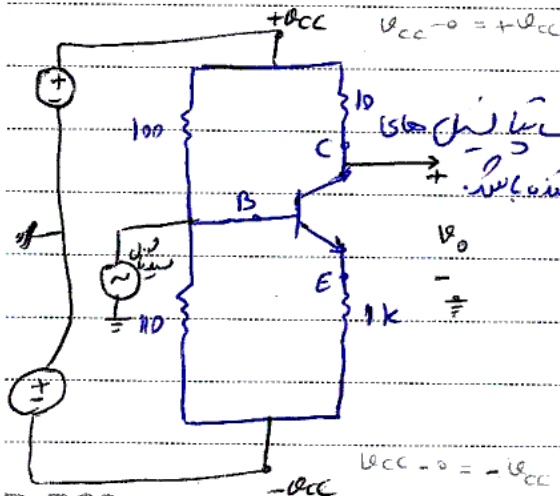 +Vcc
Vcc - 0 = +Vcc
+
-
100
10
C
+
پتانسیل های
باشد.
B
Vo
-
E
~
10
1k
+
-
Vcc - 0 = -Vcc
-Vcc